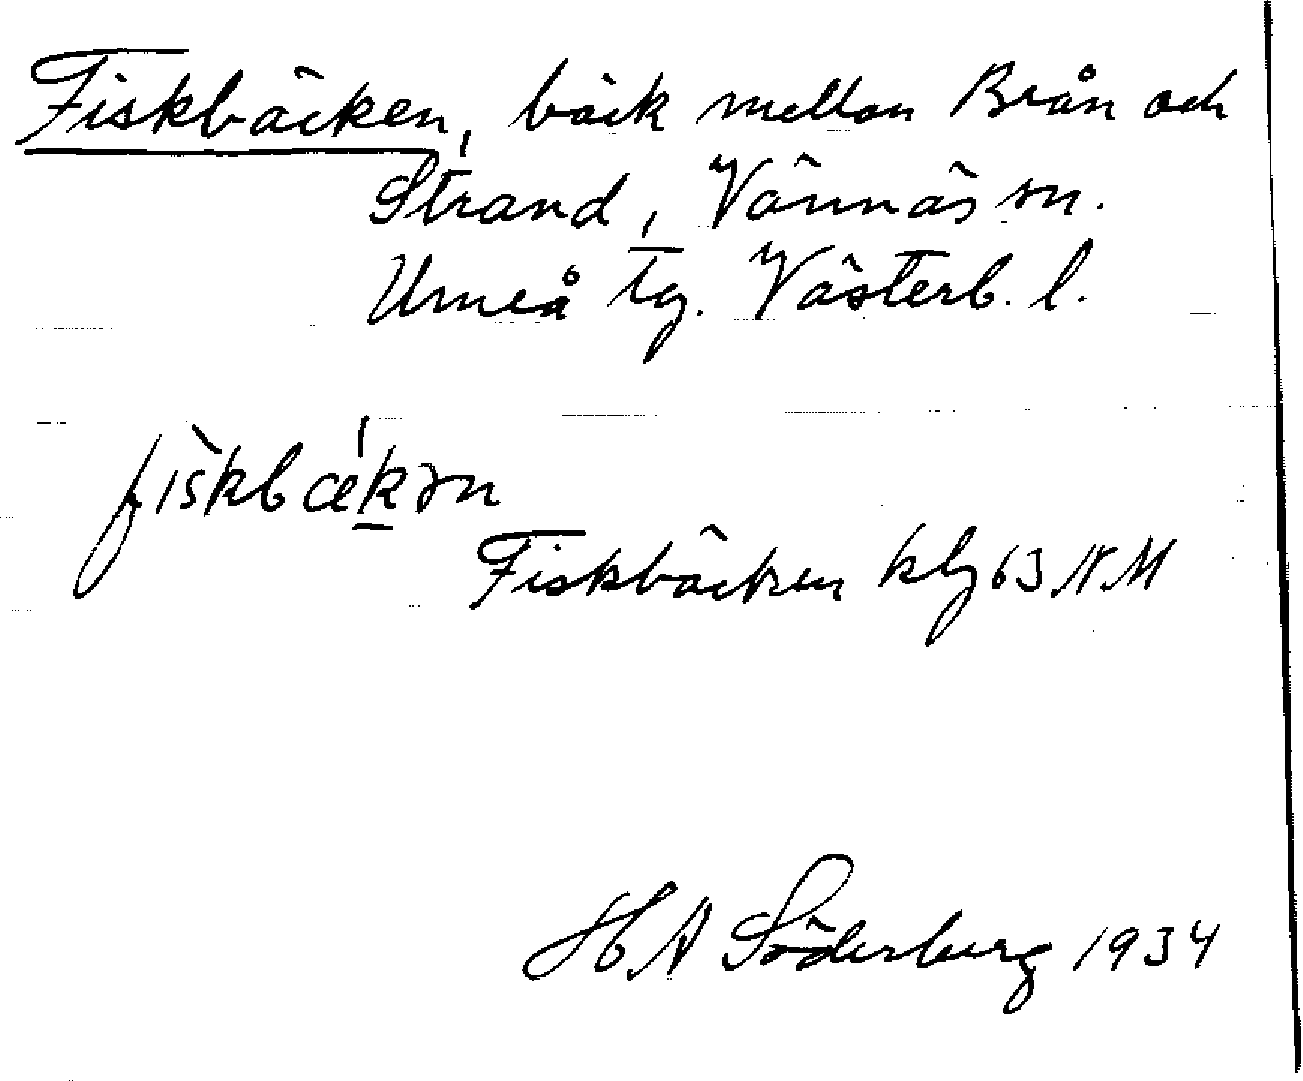 Fiskbäcken, bäck mellan Brån och
Strand, Vännäs sn.
Umeå tg. Västerb. l.
fiskbækən
Fiskbäcken klg 63 NM
H A Söderberg 1934